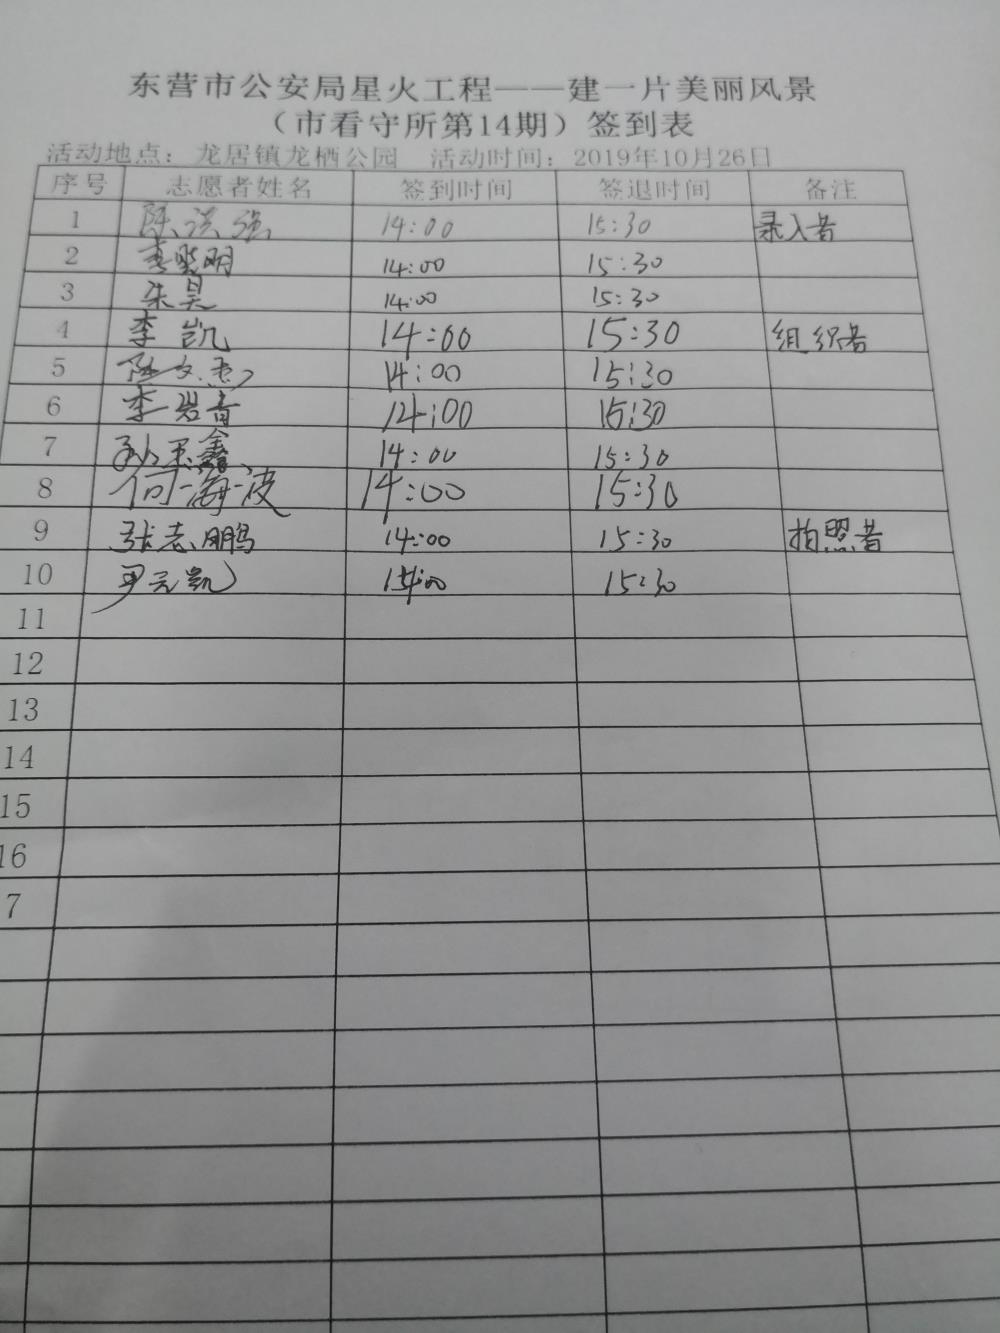 东营市公安局星火工程——建一片美丽风景
（市看守所第14期）签到表
活动地点：龙居镇龙栖公园 活动时间：2019年10月26日
序号 志愿者姓名 签到时间 签退时间 备注
1 陈洪强 14:00 15:30 录入者
2 李晓明 14:00 15:30
3 朱昊 14:00 15:30
4 李凯 14:00 15:30 组织者
5 陈文杰 14:00 15:30
6 李岩青 14:00 15:30
7 孙玉鑫 14:00 15:30
8 何海波 14:00 15:30
9 张志鹏 14:00 15:30 拍照者
10 尹元凯 14:00 15:30
11
12
13
14
15
16
7